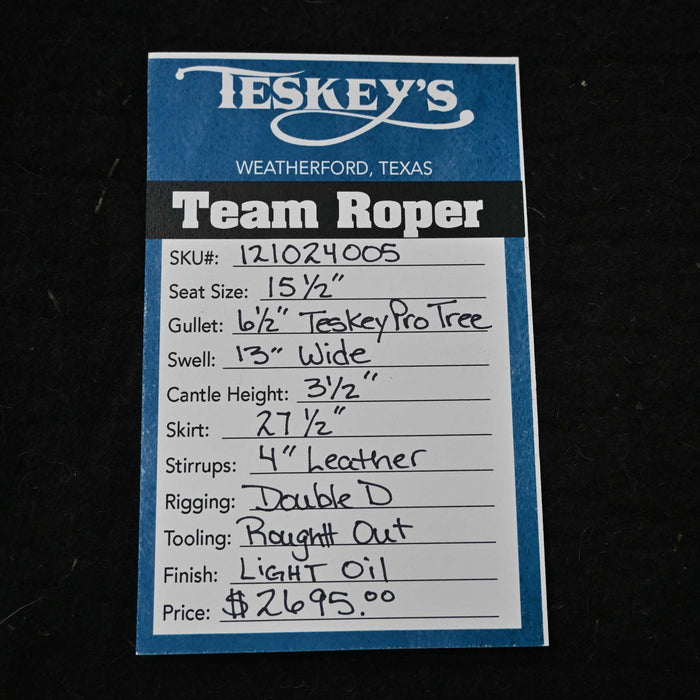 TESKEY'S
WEATHERFORD, TEXAS
Team Roper
SKU#: 121024005
Seat Size: 15 1/2"
Gullet: 6 1/2" Teskey Pro Tree
Swell: 13" Wide
Cantle Height: 3 1/2"
Skirt: 27 1/2"
Stirrups: 4" Leather
Rigging: Double D
Tooling: Rought Out
Finish: LIGHT Oil
Price: $2695.00